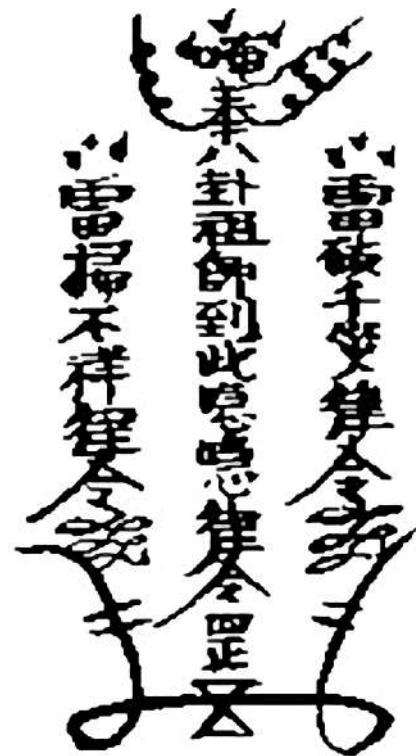 雷破千律令
唵奉八卦祖師到此律令四正
雷掃不祥律令